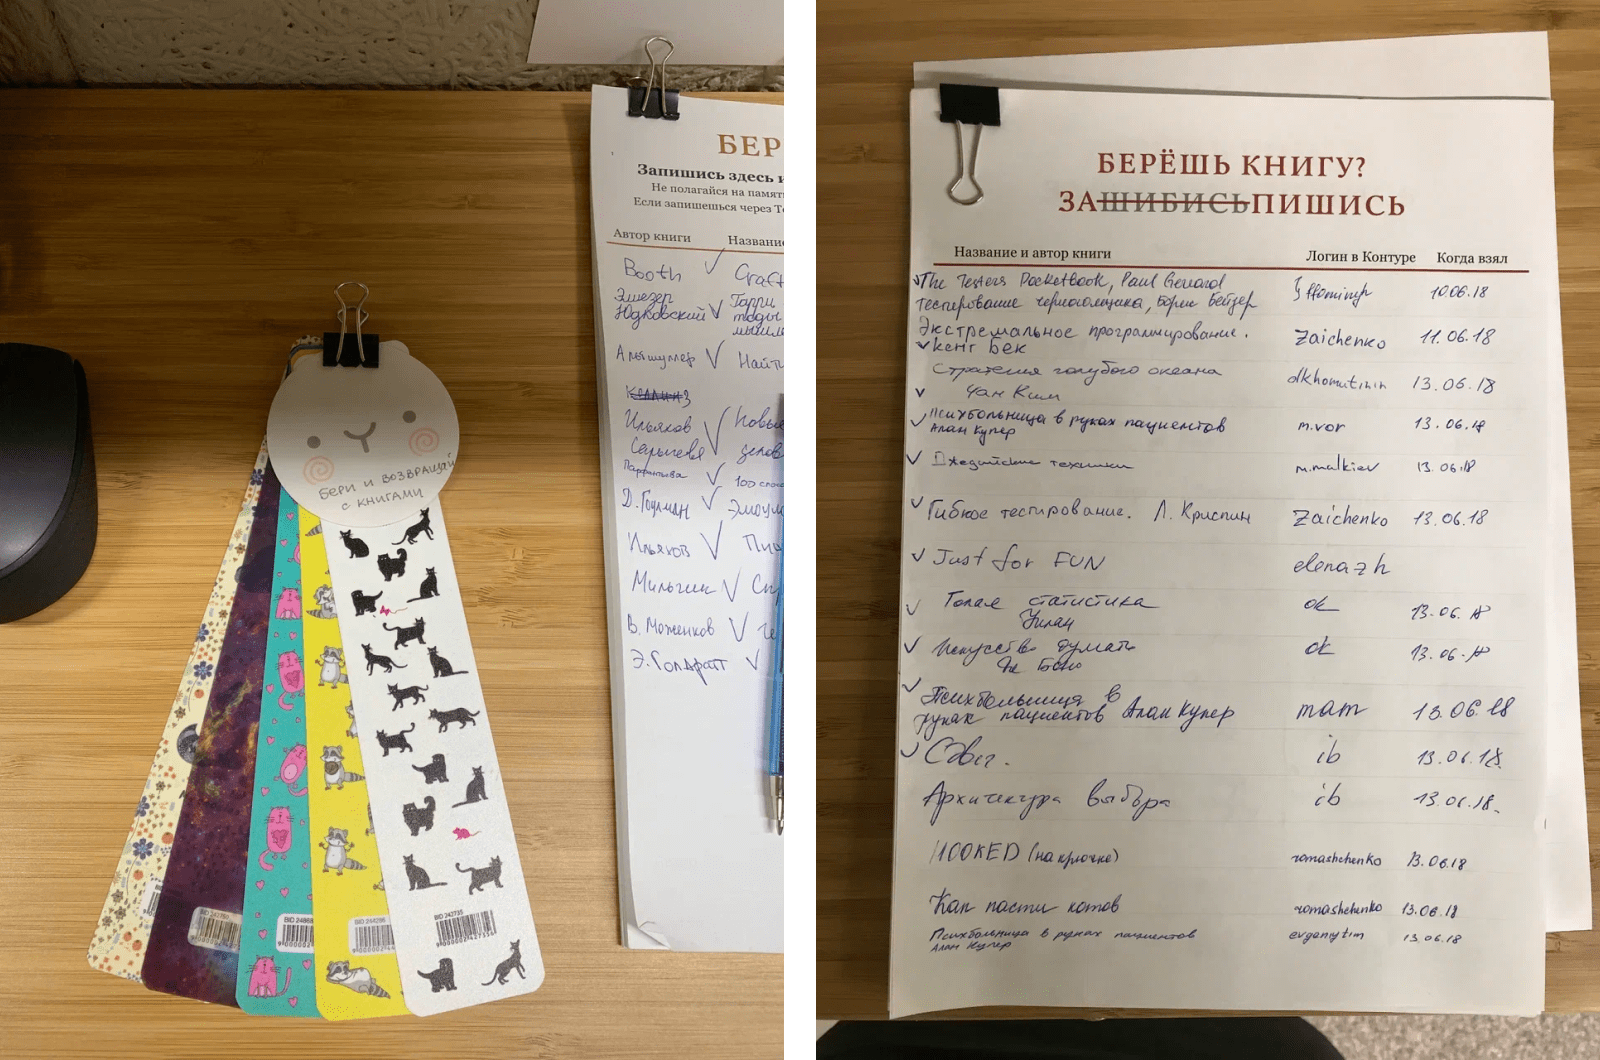 БЕРИ И ВОЗВРАЩАЙ
С КНИГАМИ
BID 242760
BID 24868
9000002
BID 244296
9000002
BID 242735
БЕР
Запишись здесь и
Не полагайся на памят
Если запишешься через Те
Автор книги Название
Booth Craft
Элиезер Гарри
Юдковский
Альтшуллер Найти
Ильяхов Новые
Сарычева делов
100
Д. Гоулман Эмоци
Ильяхов
Мильчин
В. Моженков
Э. Голдратт
БЕРЁШЬ КНИГУ?
ЗАШИБИСЬПИШИСЬ
Название и автор книги Логин в Контуре Когда взял
The Testers Pocketbook, Paul Gerrard 10.06.18
тестирование черного ящика, Борис Бейзер
Экстремальное программирование. Zaichenko 11.06.18
Кент Бек
Стратегия голубого океана dkhomutinin 13.06.18
Чан Ким
Психбольница в руках пациентов m.vor 13.06.18
Алан Купер
Джедайские техники m.malkiev 13.06.18
Гибкое тестирование. Л. Криспин Zaichenko 13.06.18
Just for FUN elenazh
Голая статистика ok 13.06.18
Уилан
Искусство думать ok 13.06.18
Де Боно
Психбольница в
руках пациентов Алан Купер mam 13.06.18
Сдвиг. ib 13.06.18.
Архитектура выбора ib 13.06.18.
HOOKED (на крючке) romashchenko 13.06.18
Как пасти котов romashchenko 13.06.18
Психбольница в руках пациентов evgeniytim 13.06.18
Алан Купер